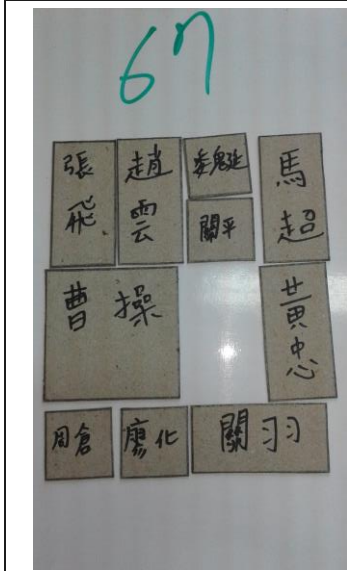 67
張飛
趙雲
魏延
關平
馬超
曹操
黃忠
周倉
廖化
關羽